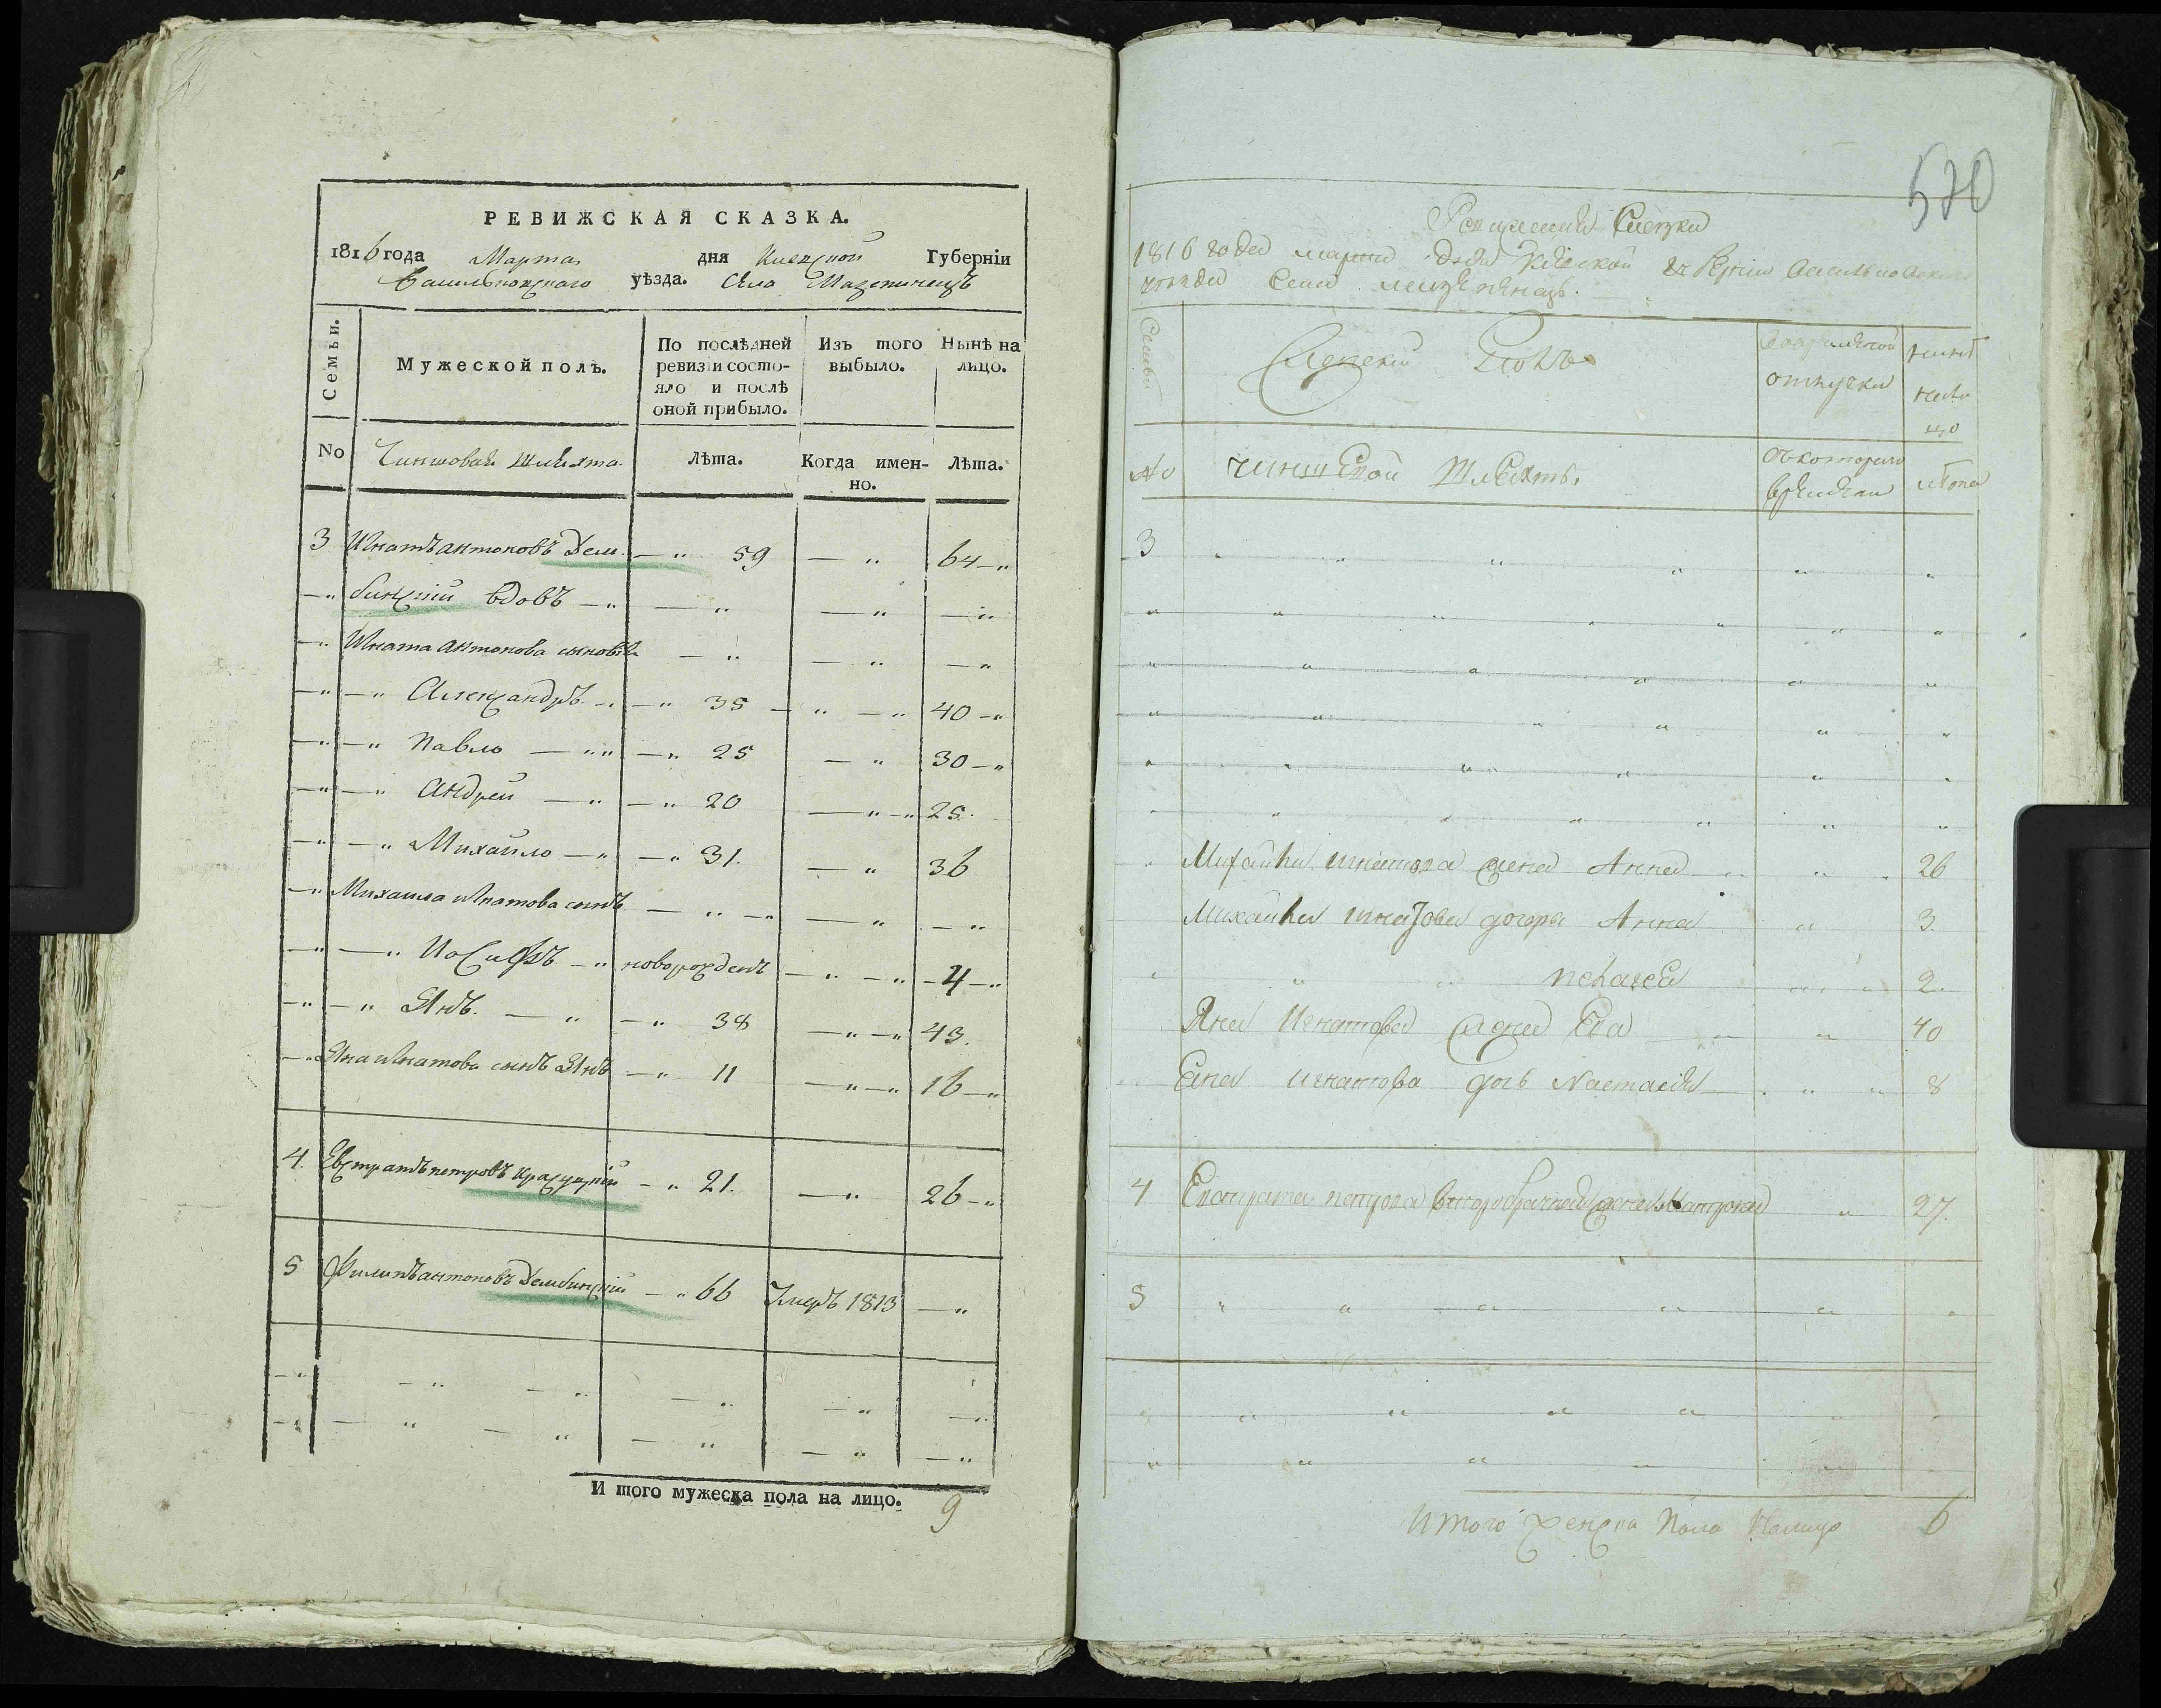 РЕВИЖСКАЯ СКАЗКА.
1816 года Марта дня Киевской Губернїи
Васильковскаго уѣзда. Села Мазепинецъ
Семьи.
Мужеской полъ.
По послѣдней ревизіи состояло и послѣ оной прибыло.
Изъ того выбыло.
Нынѣ на лицо.
No Чиншовая шляхта. лѣта. Когда именно. Лѣта.
3 Игнатъ антоновъ Дем — „ 59 — „ 64 — „
— „ бинский вдовъ — „ — „ — „ — „
— „ Игната антонова сыновья — „ — „ — „
— „ — „ Александръ — „ — „ 35 — „ — „ 40 — „
— „ — „ Павло — „ „ — „ 25 — „ 30 — „
— „ — „ Андрей — „ — „ 20 — „ — „ 25.
— „ — „ Михайло — „ — „ 31. — „ 36
— „ Михаила игнатова сынъ — „ — „ — „ — „
— „ — „ Иосифъ — „ новорожденъ — „ — „ — 4 — „
— „ — „ Янъ. — „ — „ 38 — „ — „ 43.
— „ Яна игнатова сынъ Янъ — „ 11 — „ — „ 16 — „
4. Евстратъ петровъ красуцкий — „ 21. — „ 26 — „
5 Филипъ антоновъ Дембинский — „ 66 Умеръ 1813 — „
И того мужеска пола на лицо. 9
570
Сказка
1816 года марта дня Киевской
уезда Села
Семьи
Женский Полъ
отлучки
ныне на лицо
No Шляхты.
съ котораго времени лета
3
Михайла игнатова жена Анна „ „ 26
Михайла игнатова дочери Анна „ 3.
„ „ Пелагея „ „ 2.
Яна Игнатова жена Ева „ „ 40
Яна игнатова дочь Настасия „ „ 8
4 Евстрата петрова второбрачная жена „ 27.
5 „ „ „ „ „ „
Итого женска пола налицо 6